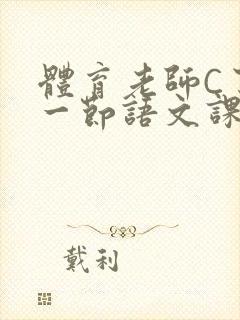 體育老師C了
一節語文課
戴利